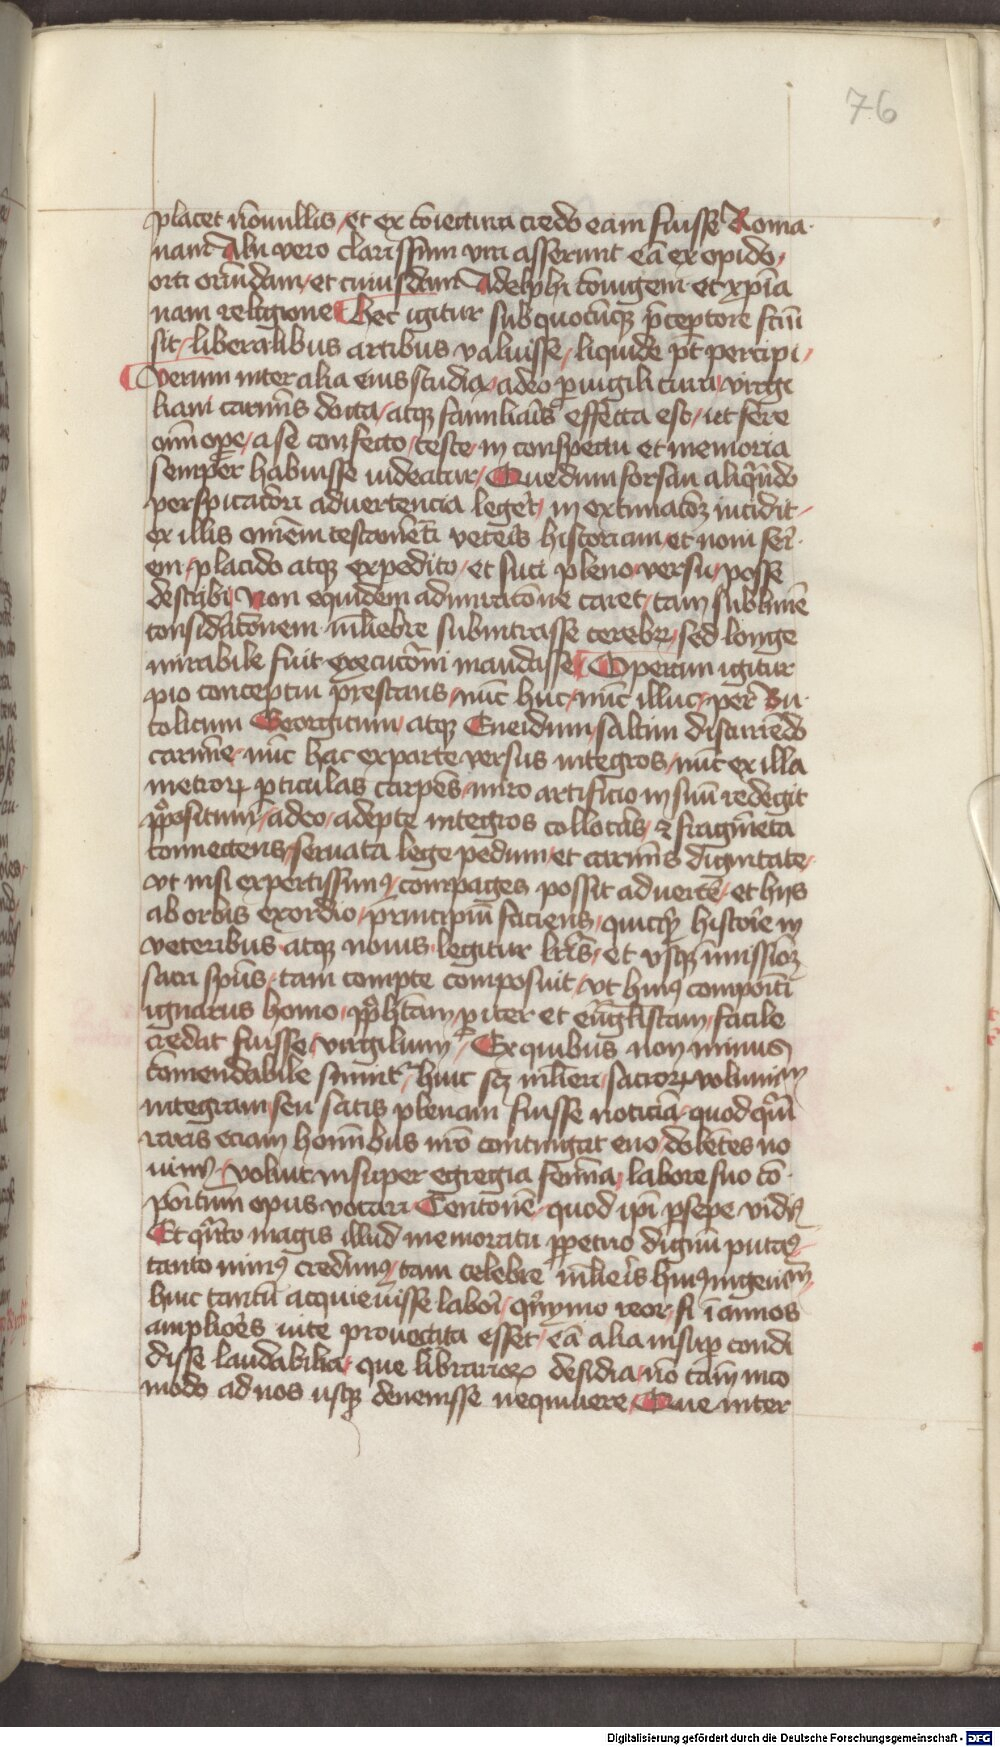 76
placet nōnullis / et ex cōiectura credo eam fuisse Roma-
nam Alii vero clarissimi viri asserunt eā ex opido /
orti oriūdam / et cuiusdam Adelphi cōiugem et xp̄ia
nam religione Hec igitur sub quocūq₃ p̄ceptore fcm̄
sit / liberalibus artibus valuisse / liquide pt̄ percipi /
Verum inter alia eius studia / adeo ꝑuigili cura / virgi
liani carmīs docta / atq₃ familiaris effecta est / ut fere
omi oꝑe / a se confecto / teste / in conspectu et memoria
semper habuisse uideatur / Quedum forsan aliqn̄do
perspicaciori advertencia legeret / in extimatōeȝ incidit /
ex illis omēm testamēti veteris historiam et noui seri-
em / placido atq₃ expedito / et suci pleno versu / posse
describi / Non equidem admiratōne caret / tam sublimē
considatōnem m̄liebre subintrasse cerebrū / sed longe
mirabile fuit execucōni mandasse Operam igitur
pio conceptui prestans / nūc huc / nūc illuc / per Bu-
colicum Georgicum / atq₃ Eneidum / saltim discurrēdo
carmīe / nūc hac ex parte versus integros / nūc ex illa
metroꝝ ꝑticulas carpēs / miro artificio in suū redegit
ꝓpositum / adeo / adepte integros collocās / ⁊ fragmēta
connectens / seruata lege pedum / et carmīs dignitate /
vt nisi expertissimꝰ / compages possit advertē / et hijs
ab orbis exordio / principiū faciens / quicq̄ historie in
veteribus atq₃ nouis legitur lr̄is / et usq₃ īmissiōȝ
sacri spūs / tam compte composuit / vt huiꝰ compoīti
ignarus homo / ꝓph̄tam ꝑiter et eūg̃listam / facile
credat fuisse virgilium / Ex quibus non minus
cōmendabile sumit̄ / huic scȝ m̄lieri / sacroꝝ voluminū
integram / seu satis plenam fuisse noticiā / quod qn̄
raris eciam homībus nr̄o contingat euo / dolētes no
uimꝰ / Voluit insuper egregia femīa / labore suo cō-
poītum opus vocari Centonē / quod ipī ꝑsepe vidimꝰ
Et qn̄to magis illud memoratu ꝑpetuo dignū putamꝰ /
tanto minꝰ credimꝰ / tam celebre m̄lieris huiꝰ ingeniū /
huic tantū acquieuisse labori / qn̄ymo reor / si ī annos
ampliores uite prouecta esset / eā alia insuꝑ condi
disse laudabilia / que librarioꝝ desidia / nō tām inco
modo ad nos usq₃ deuenisse nequiuere / Que inter
Digitalisierung gefördert durch die Deutsche Forschungsgemeinschaft - DFG